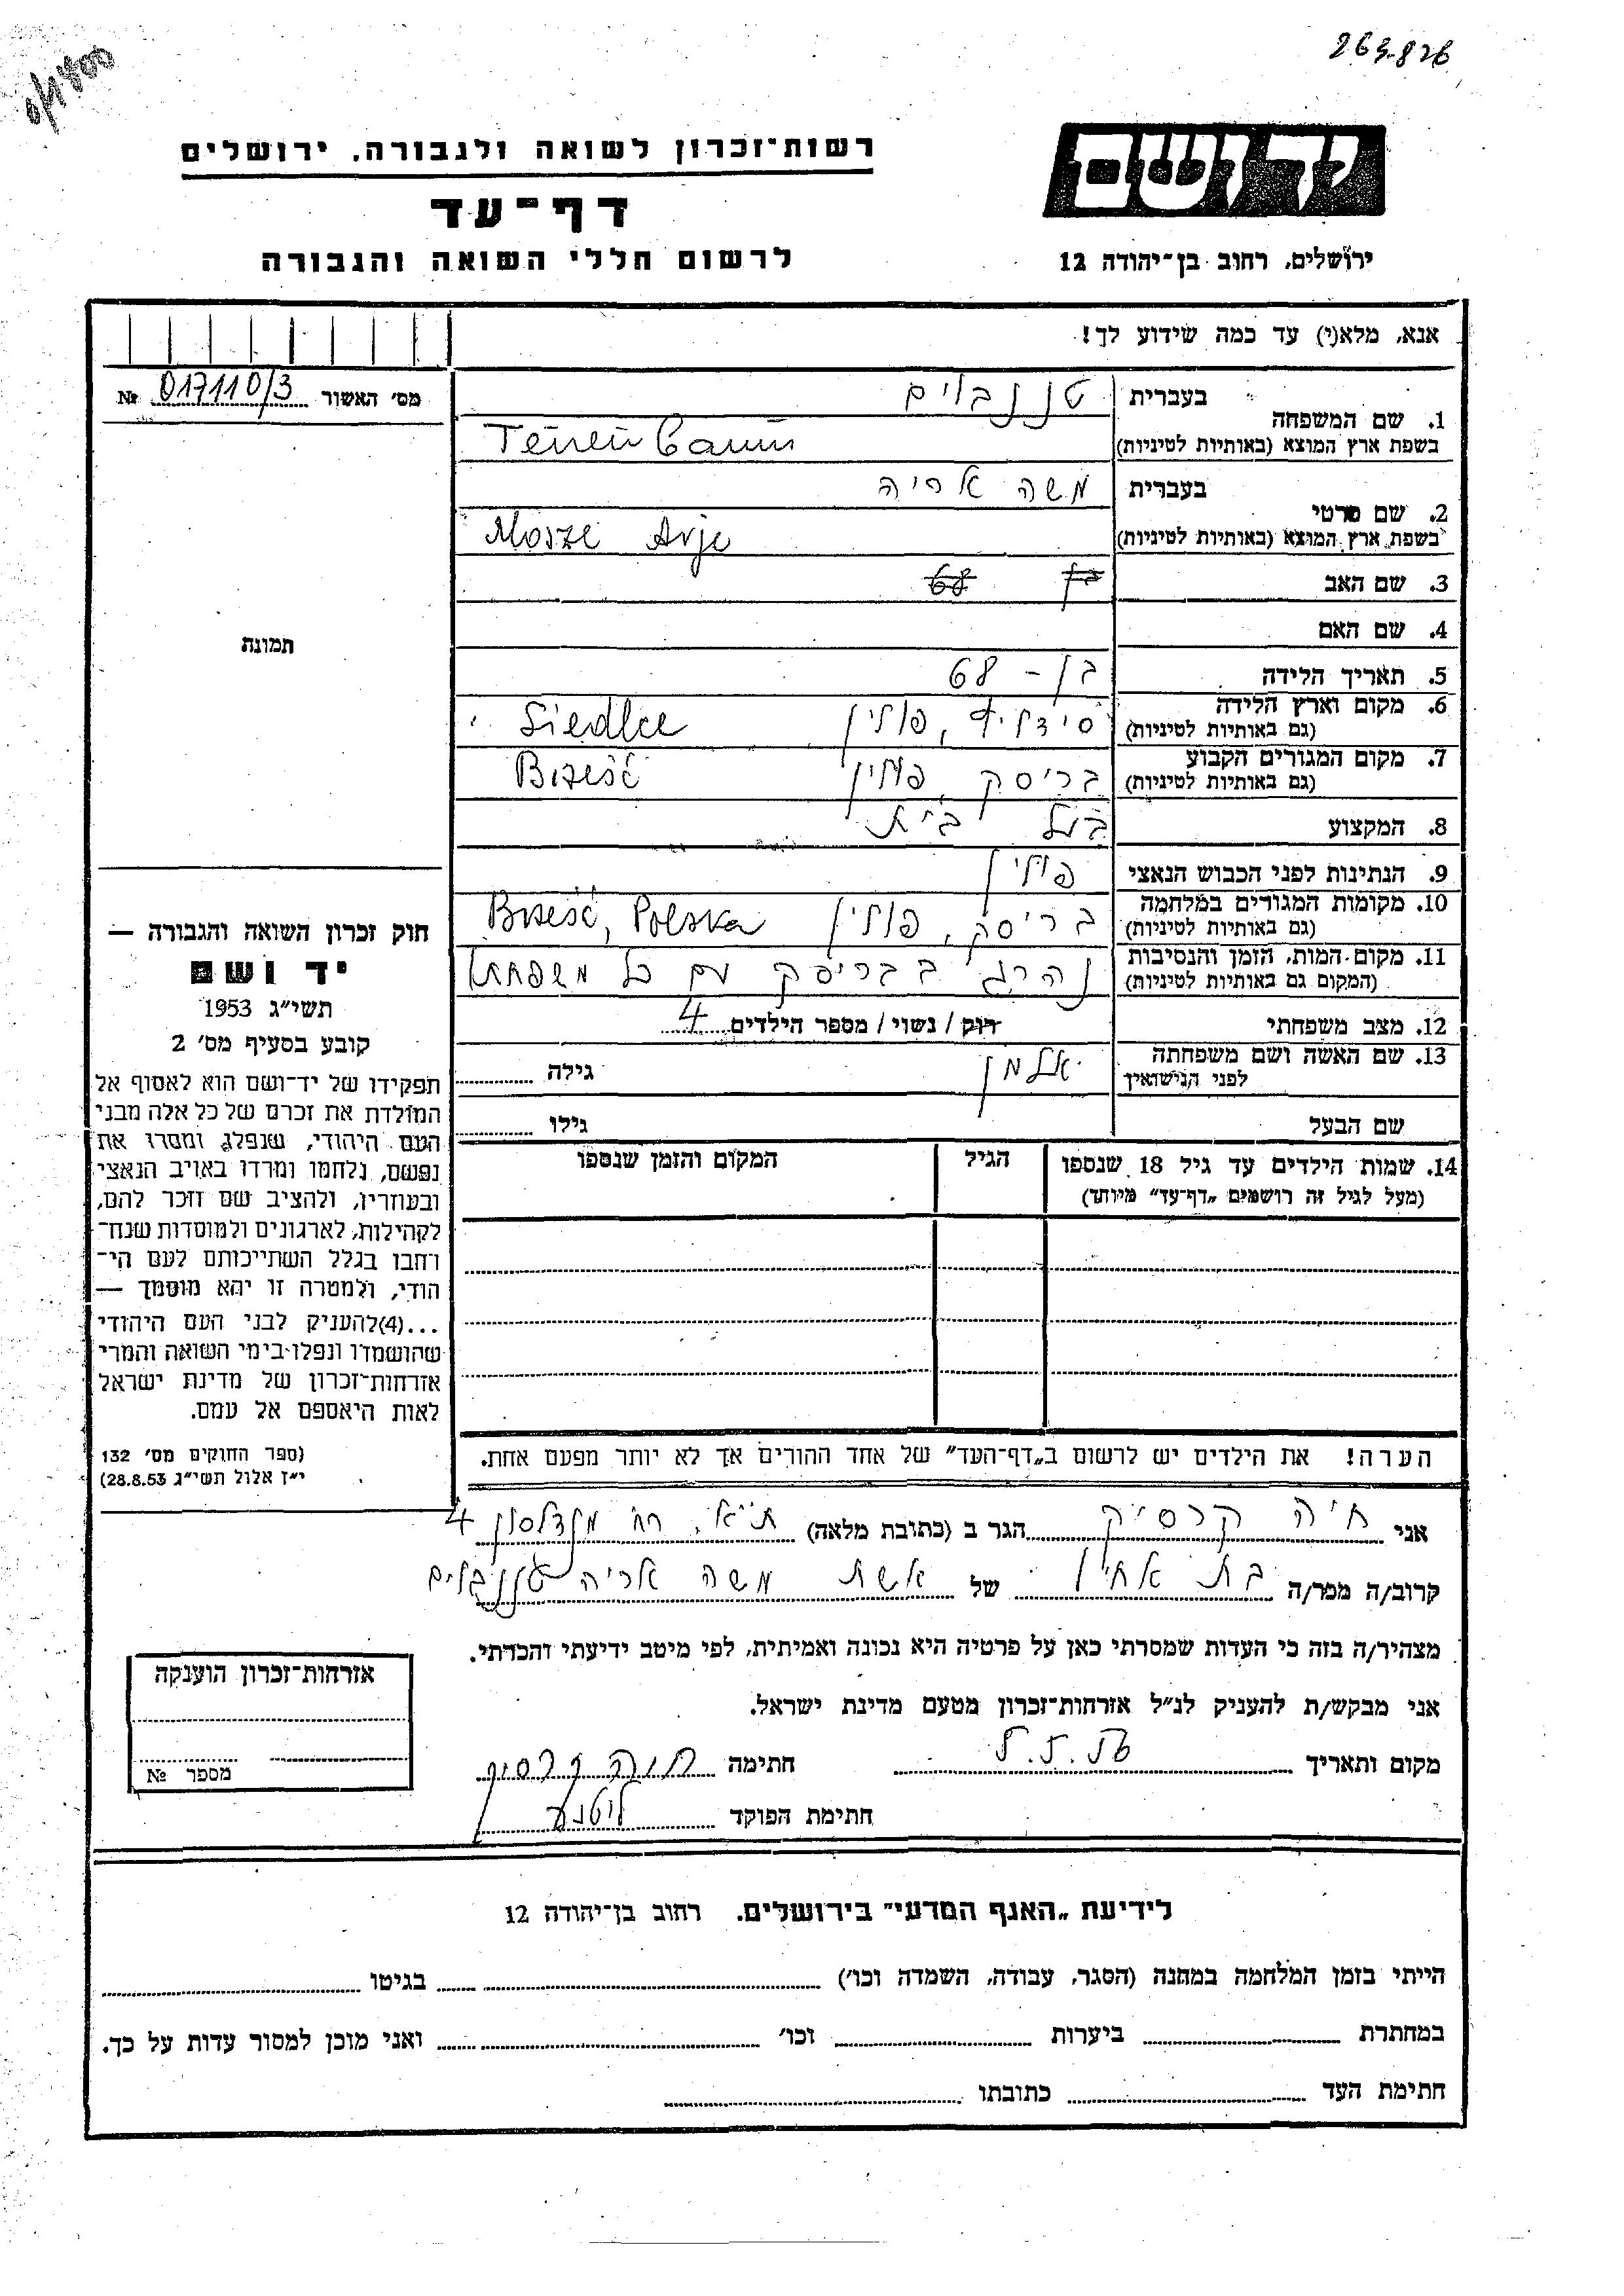 263826
רשות־זכרון לשואה ולגבורה, ירושלים
דף־עד
לרשום חללי השואה והגבורה
יד ושם
ירושלים, רחוב בן־יהודה 12
אנא, מלא(י) עד כמה שידוע לך!
מס׳ האשור 017110/3 №
תמונה
1. שם המשפחה בעברית טננבוים
בשפת ארץ המוצא (באותיות לטיניות) Tenenbaum
2. שם פרטי בעברית משה אריה
בשפת ארץ המוצא (באותיות לטיניות) Mosze Arje
3. שם האב בן 68
4. שם האם
5. תאריך הלידה בן – 68
6. מקום וארץ הלידה סידליץ, פולין, Siedlce
(גם באותיות לטיניות)
7. מקום המגורים הקבוע בריסק, פולין Brześć
(גם באותיות לטיניות)
8. המקצוע בעל בית
9. הנתינות לפני הכבוש הנאצי פולין
10. מקומות המגורים במלחמה בריסק, פולין Brześć, Polska
(גם באותיות לטיניות)
11. מקום המות, הזמן והנסיבות נהרג בבריסק עם כל משפחתו
(המקום גם באותיות לטיניות)
12. מצב משפחתי רוק / נשוי / מספר הילדים 4
13. שם האשה ושם משפחתה אלמן גילה
לפני הנישואין
שם הבעל גילו
14. שמות הילדים עד גיל 18 שנספו הגיל המקום והזמן שנספו
(מעל לגיל זה רושמים „דף־עד” מיוחד)
הערה! את הילדים יש לרשום ב„דף־העד” של אחד ההורים אך לא יותר מפעם אחת.
חוק זכרון השואה והגבורה —
יד ושם
תשי״ג 1953
קובע בסעיף מס׳ 2
תפקידו של יד־ושם הוא לאסוף אל
המולדת את זכרם של כל אלה מבני
העם היהודי, שנפלו ומסרו את
נפשם, נלחמו ומרדו באויב הנאצי
ובעוזריו, ולהציב שם וזכר להם,
לקהילות, לארגונים ולמוסדות שנח־
רחבו בגלל השתייכותם לעם הי־
הודי, ולמטרה זו יהא מוסמך —
...(4)להעניק לבני העם היהודי
שהושמדו ונפלו בימי השואה והמרי
אזרחות־זכרון של מדינת ישראל
לאות היאספם אל עמם.
(ספר החוקים מס׳ 132
י״ז אלול תשי״ג 28.8.53)
אני חיה קרסיק הגר ב (כתובת מלאה) ת״א, רח׳ מנדלסון 4
קרוב/ה מכר/ה בת אחין של אשת משה אריה טננבוים
מצהיר/ה בזה כי העדות שמסרתי כאן על פרטיה היא נכונה ואמיתית, לפי מיטב ידיעתי והכרתי.
אני מבקש/ת להעניק לנ״ל אזרחות־זכרון מטעם מדינת ישראל.
מקום ותאריך חתימה חיה קרסיק
חתימת הפוקד
אזרחות־זכרון הוענקה
מספר №
לידיעת „האגף המדעי” בירושלים, רחוב בן־יהודה 12
הייתי בזמן המלחמה במחנה (הסגר, עבודה, השמדה וכו׳) בגיטו
במחתרת ביערות וכו׳ ואני מוכן למסור עדות על כך.
חתימת העד כתובתו